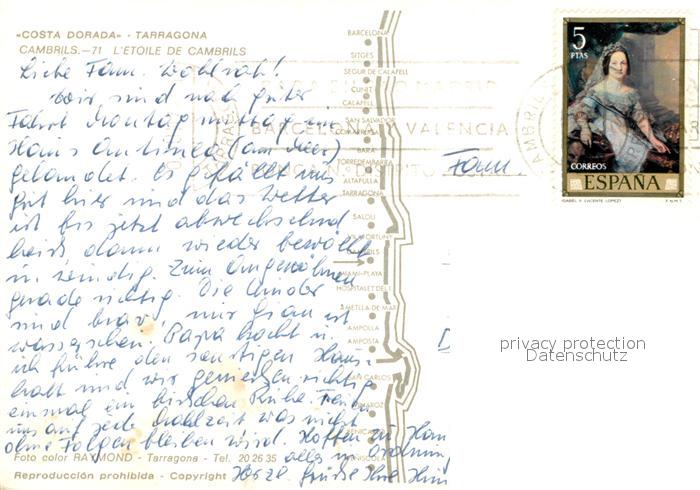 «COSTA DORADA» - TARRAGONA
CAMBRILS.—71 L'ETOILE DE CAMBRILS
Liebe Fam.
Wir sind nach guter
Fahrt Montag mittag im
Haus (am Meer)
gelandet. Es gefällt uns
gut hier und das Wetter
ist bis jetzt abwechselnd
heiß dann wieder bewölkt
u. windig. Zum Angewöhnen
gerade richtig. Die Kinder
sind brav, nur ist
wasserscheu. Papa kocht u.
ich führe den sonstigen Haus-
halt und wir genießen richtig
einmal ein bisschen Ruhe. Freuen
uns auf jede Mahlzeit was nicht
ohne Folgen bleiben wird. Hoffen zu Hau
alles in Ordnung
Herzl. Grüße Ihre
Foto color RAYMOND - Tarragona - Tel. 20 26 35
Reproducción prohibida - Copyright
BARCELONA
SITGES
SEGUR DE CALAFELL
CUNIT
CALAFELL
SAN SALVADOR
COMARRUGA
BARA
TORREDEMBARRA
ALTAFULLA
TARRAGONA
SALOU
VILAFORTUNY
CAMBRILS
MIAMI-PLAYA
HOSPITALET DEL I.
AMETLLA DE MAR
AMPOLLA
AMPOSTA
SAN CARLOS
VINAROZ
BENICARLO
PEÑISCOLA
BARCELONA VALENCIA
CAMBRILS
Fam.
D
5
PTAS
CORREOS
ESPAÑA
ISABEL II (VICENTE LOPEZ)
F.N.M.T.
privacy protection
Datenschutz